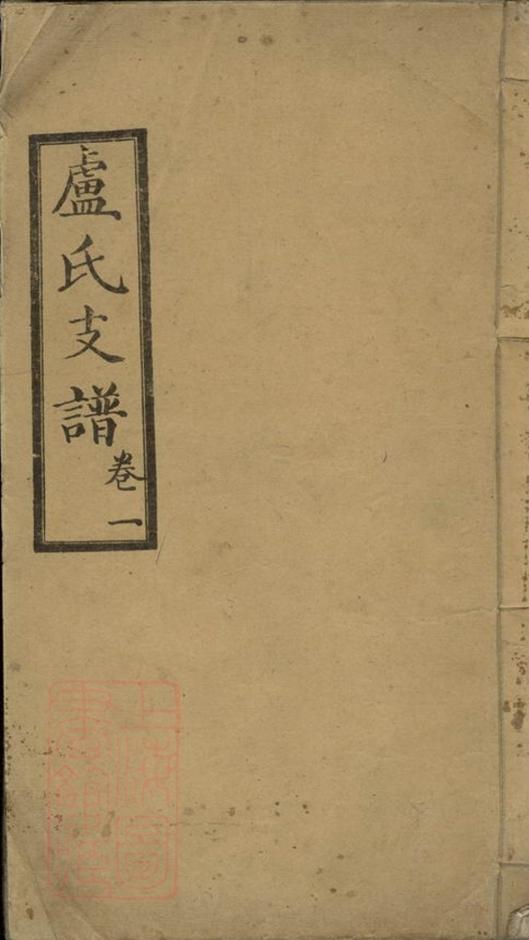 盧氏支譜
卷一
上海圖書館藏